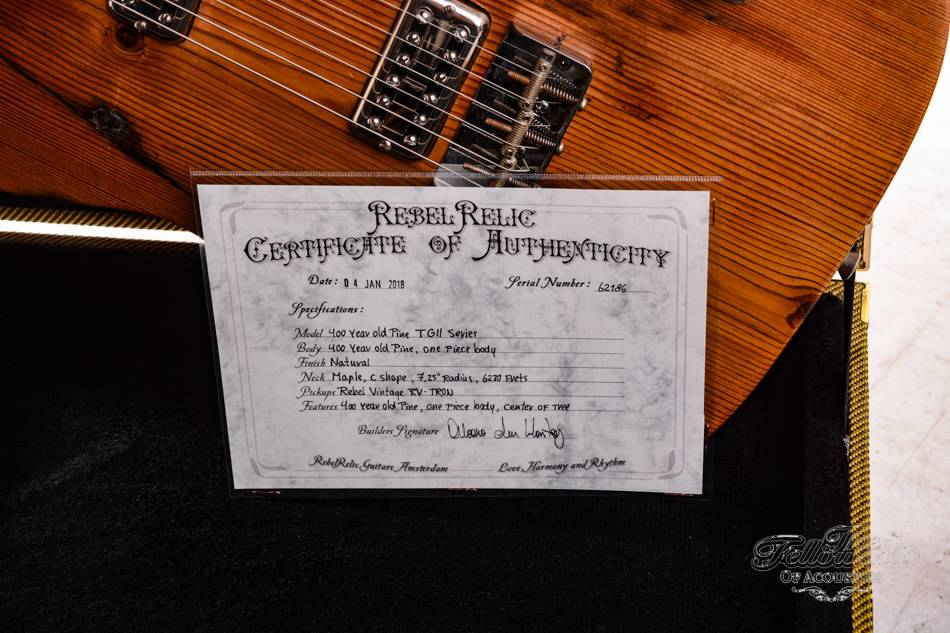 RebelRelic
Certificate of Authenticity
Date: 04 JAN 2018 Serial Number: 62186
Specifications:
Model 400 Year old Pine TG11 Series
Body 400 Year old Pine, one piece body
Finish Natural
Neck Maple, C shape, 7,25" Radius, 6230 Frets
Pickups Rebel Vintage RV-TRON
Features 400 Year old Pine, one piece body, center of Tree
Builders Signature
RebelRelic Guitars Amsterdam Love, Harmony and Rhythm
Of Acoustics